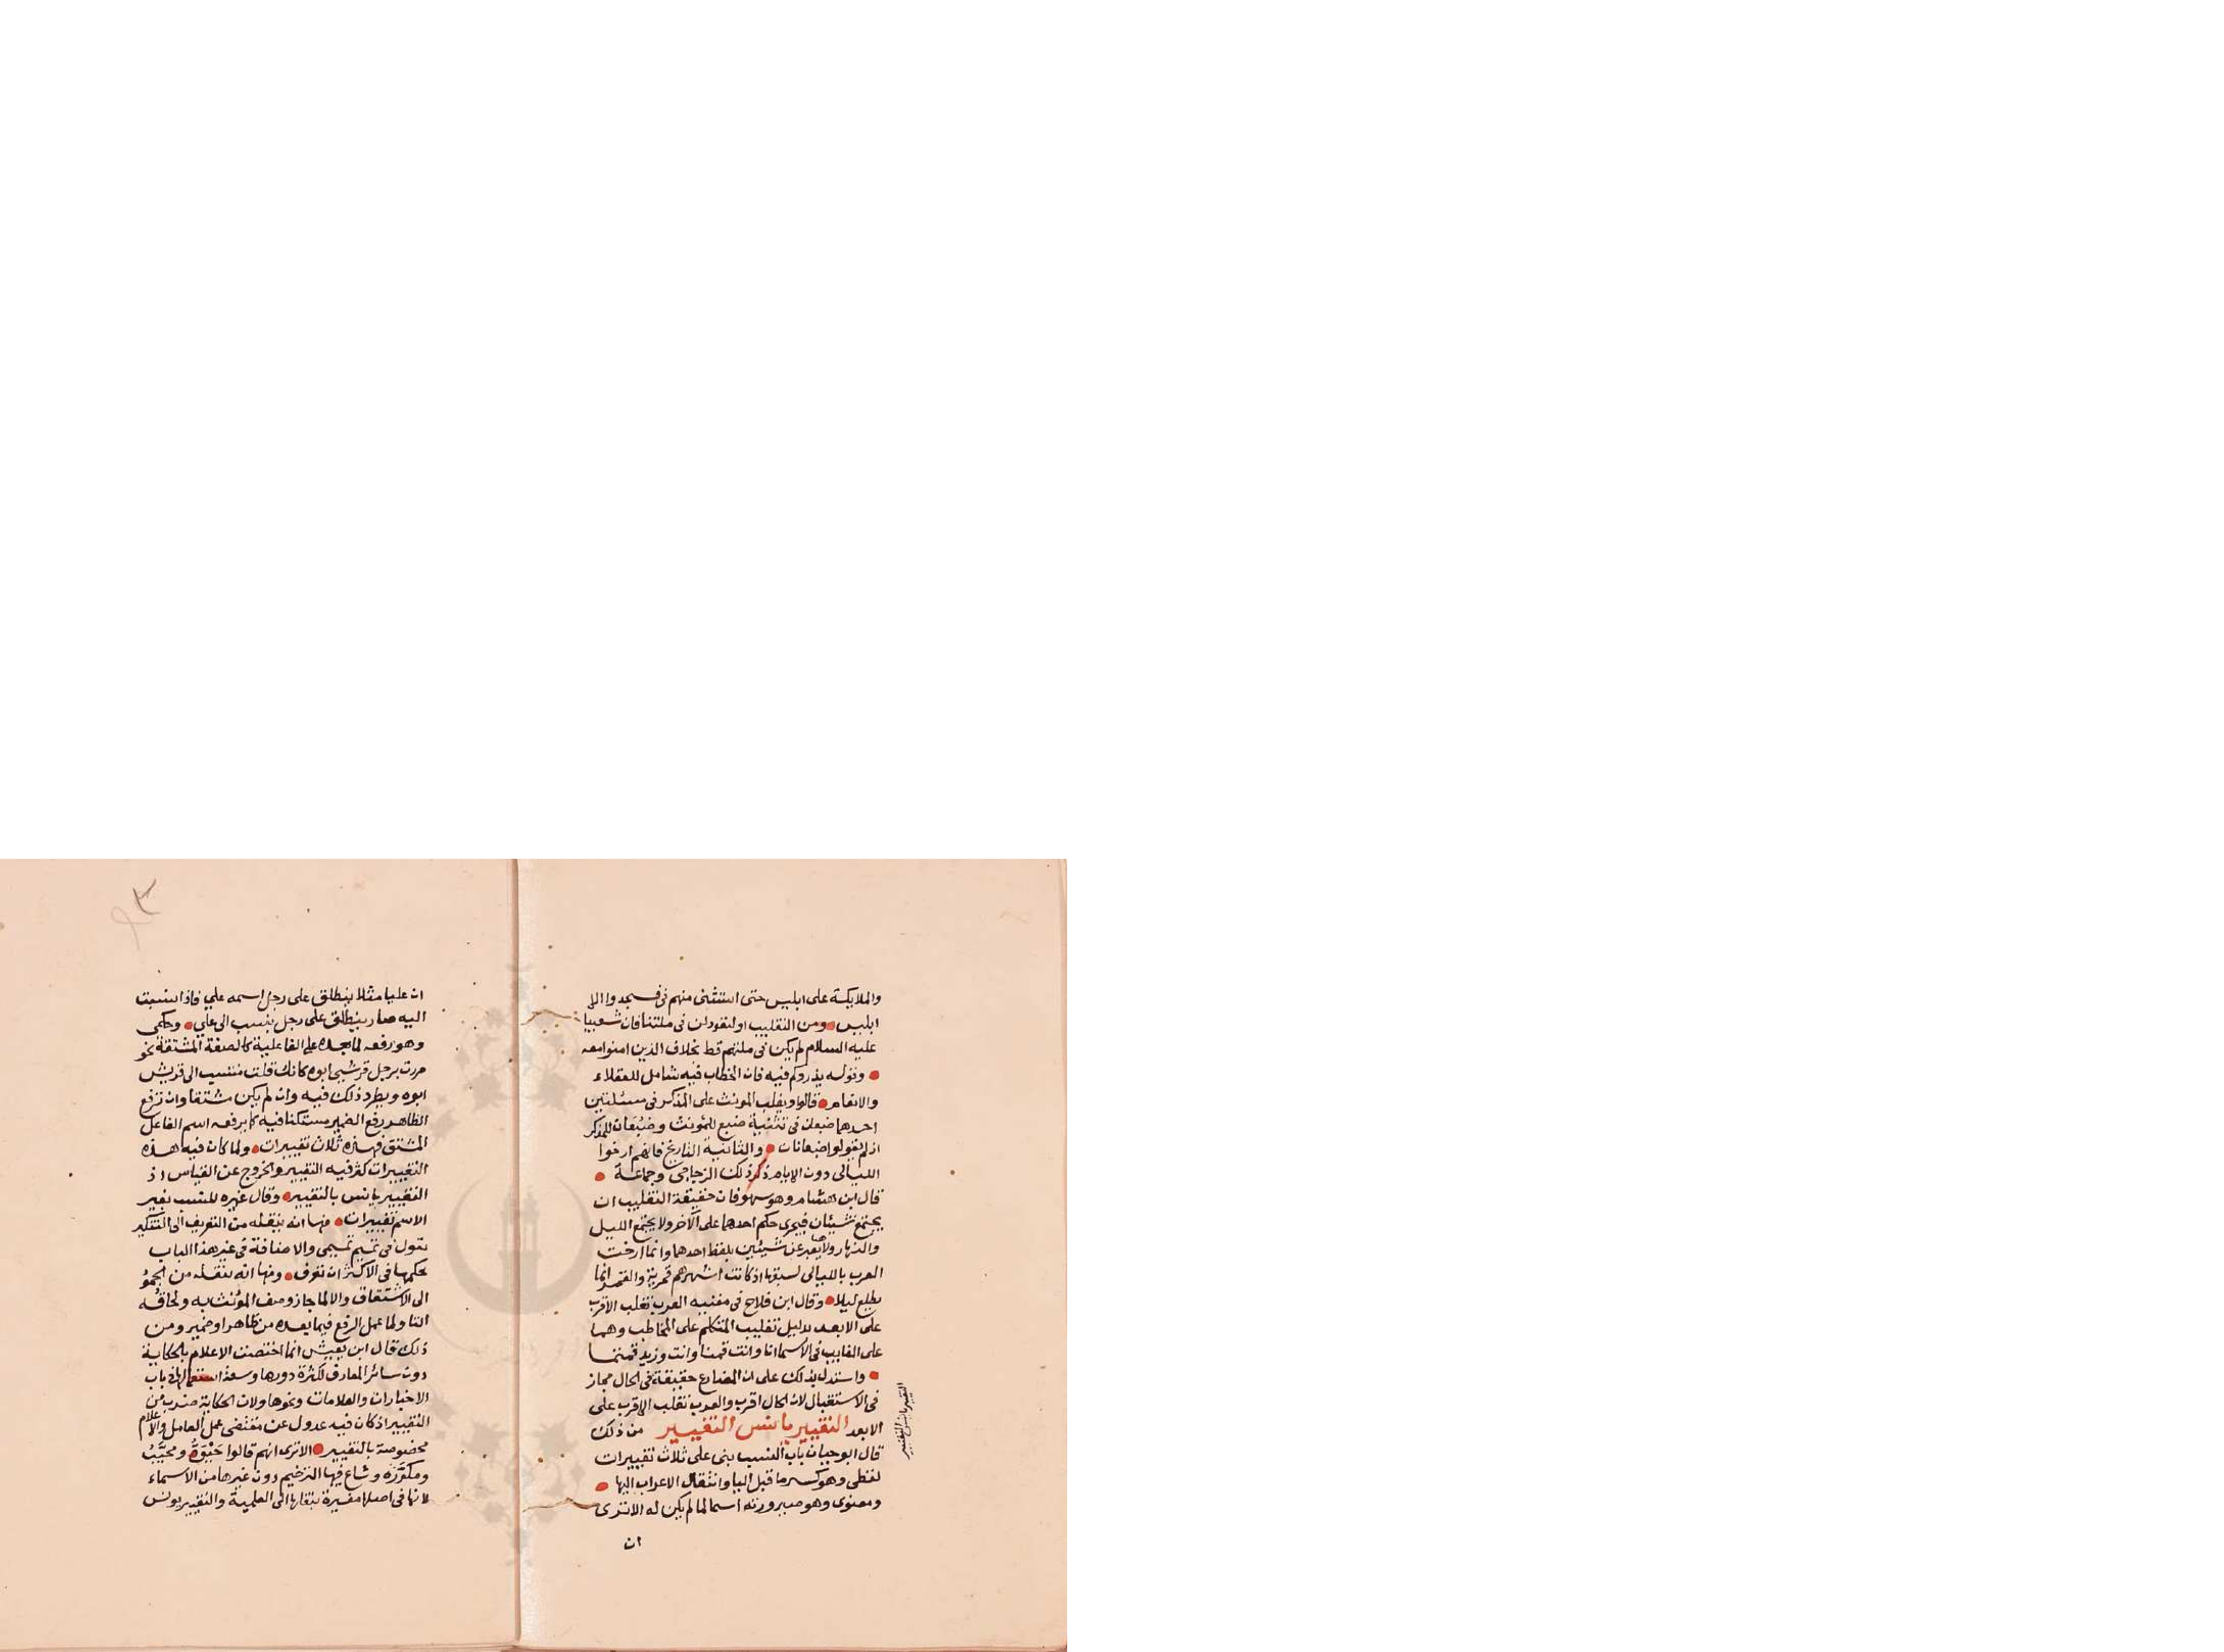 والملايكة على ابليس حتى استثنى منهم في فسجدوا الا
ابليس ومن التغليب او لتعودن في ملتنا فان شعيبا
عليه السلام لم يكن في ملتهم قط بخلاف الذين امنوا معه
وقوله يذروكم فيه فان الخطاب فيه شامل للعقلاء
والانعام قالوا ويغلب المونث على المذكر في مسئلتين
احدهما ضبعان في تثنية ضبع للمؤنث وضبعان للمذكر
اذ لم يقولوا ضبعانات والثانية التاريخ فانهم ارخوا
الليالي دون الايام ذكر ذلك الزجاجي وجماعة
قال ابن هشام وهو سهو فان حقيقة التغليب ان
يجتمع شيئان فيجرى حكم احدهما على الآخر ولا يجتمع الليل
والنهار ولا يعبر عن شيئين بلفظ احدهما وانما ارخت
العرب بالليالي لسبقها اذ كانت اشهرهم قمرية والقمر انما
يطلع ليلا وقال ابن فلاح في مغنيه العرب تغلب الاقرب
على الابعد بدليل تغليب المتكلم على المخاطب وهما
على الغايب في الاسما انا وانت قمنا وانت وزيد قمتما
واستدل بذلك على ان المضارع حقيقة في الحال مجاز
في الاستقبال لان الحال اقرب والعرب تغلب الاقرب على
الابعد التغيير يانس التغيير من ذلك
قال ابو حيان باب النسب بنى على ثلاث تغييرات
لفظى وهو كسر ما قبل اليا وانتقال الاعراب اليها
ومعنوى وهو صيرورته اسما لما لم يكن له الا ترى
ان
التغيير يانس التغيير
ان عليا مثلا ينطلق على رجل اسمه علي فاذا نسبت
اليه صار ينطلق على رجل ينسب الى علي وحكمى
وهو رفعه لما بعده على الفاعلية كالصفة المشتقة نحو
مررت برجل قرشي ابوه كانك قلت منتسب الى قريش
ابوه ويطرد ذلك فيه وان لم يكن مشتقا وان ترفع
الظاهر رفع الضمير مستكنا فيه كما يرفعه اسم الفاعل
المشتق فهذه ثلاث تغييرات ولما كان فيه هذه
التغييرات كثر فيه التغيير والخروج عن القياس اذ
التغيير يانس بالتغيير وقال غيره للنسب بغير
الاسم تغييرات منها انه ينقله من التعريف الى التنكير
تقول في تميم تميمى والاضافة في غير هذا الباب
حكمها في الاكثر ان تعرف ومنها انه ينقله من الجمود
الى الاشتقاق والا لما جاز وصف المؤنث به ولحاقه
التا ولما عمل الرفع فيما بعده من ظاهر او ضمير ومن
ذلك قال ابن يعيش انما اختصت الاعلام بالحكاية
دون سائر المعارف لكثرة دورها وسعة استعمالها في باب
الاخبارات والعلامات ونحوها ولان الحكاية ضرب من
التغيير اذ كان فيه عدول عن مقتضى عمل العامل والاعلام
مخصوصة بالتغيير الا ترى انهم قالوا حيوة ومحبب
ومكوزة وشاع فيها الترخيم دون غيرها من الاسماء
لانها في اصلها مغيرة بنقلها الى العلمية والتغيير يونس